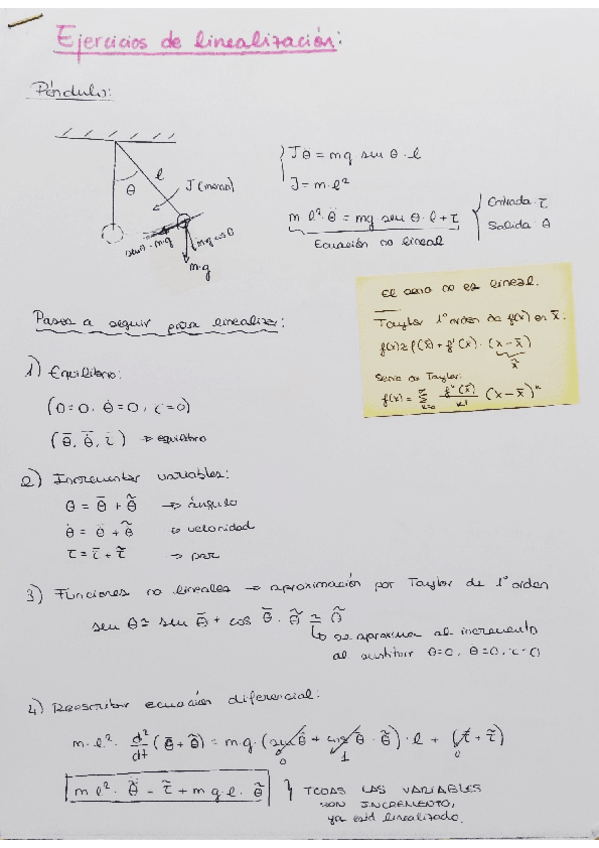 Ejercicios de linealización:
Péndulo:
θ
l
J (inercia)
senθ·mg
mg cosθ
m·g
J θ̈ = mg sen θ · l
J = m·l²
m l² · θ̈ = mg sen θ · l + τ
Ecuación no lineal
Entrada: τ
Salida: θ
El seno no es lineal.
Taylor 1º orden de f(x) en x̄:
f(x) ≃ f(x̄) + f'(x̄) · (x - x̄)
x̃
Serie de Taylor:
Pasos a seguir para linealizar:
1) Equilibrio:
(θ=0, θ̇=0, τ=0)
→ equilibrio
2) Incrementar variables:
θ = θ̄ + θ̃ → ángulo
→ velocidad
τ = τ̄ + τ̃ → par
3) Funciones no lineales → aproximación por Taylor de 1º orden
sen θ ≃ sen θ̄ + cos θ̄ · θ̃ ≃ θ̃
↳ se aproxima al incremento
al sustituir θ=0, θ̇=0, τ=0
4) Reescribir ecuación diferencial:
m·l² · d²/dt (θ̄ + θ̃) = mg · (sen θ̄ + cos θ̄ · θ̃) · l + (τ̄ + τ̃)
0 1 0
m l² · θ̃̈ = τ̃ + m g · l · θ̃
TODAS LAS VARIABLES
SON INCREMENTO,
ya está linealizado.